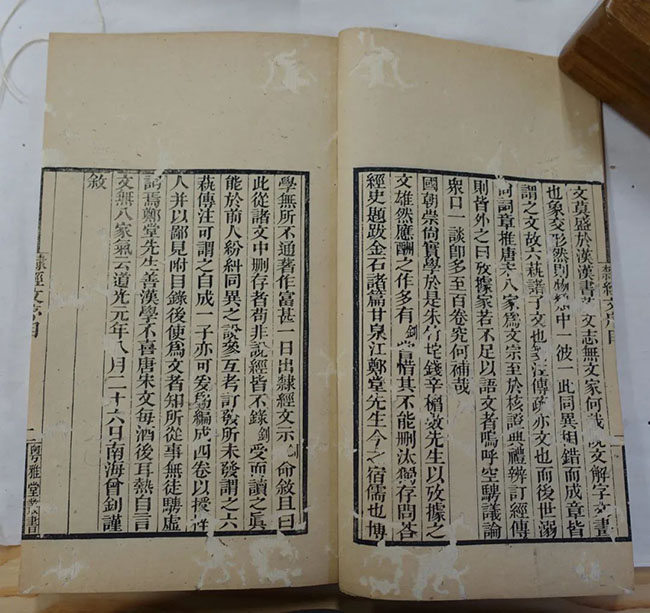 文莫盛於漢漢書藝文志無文家何哉說文解字文書
也象交形然則物相中一彼一此同異相錯而成章皆
謂之文故六蓺諸子文也箋注傳疏亦文也而後世溺
詞章推唐宋八家爲文宗至於核證典禮辨訂經傳
則皆外之曰攷據家若不足以語文者嗚呼空騁議論
衆口一談卽多至百卷究何補哉
國朝崇尚實學於是朱竹垞錢辛楣數先生以攷據之
文雄然應酬之作多有釗嘗惜其不能刪汰獨存問答
經史題跋金石諸篇甘泉江鄭堂先生今之宿儒也博
學無所不通著作富甚一日出隸經文示釗命敘且曰
此從諸文中刪存者苟非說經皆不錄釗受而讀之眞
能於前人紛糾同異之說參互考訂發所未發謂之六
蓺傳注可謂之自成一子亦可爰爲編成四卷以授梓
人并以鄙見附目錄後使爲文者知所從事無徒騁虛
詞焉鄭堂先生善漢學不喜唐宋文每酒後耳熱自言
文無八家氣云道光元年八月二十六日南海曾釗謹
敘
隸經文 目
二 粤雅堂叢書